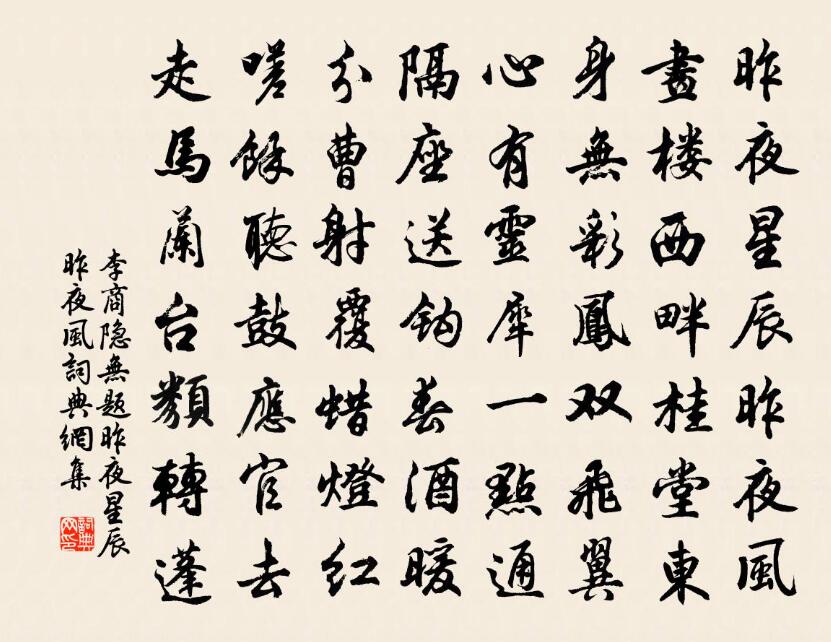 昨夜星辰昨夜風
畫楼西畔桂堂東
身無彩鳳双飛翼
心有靈犀一點通
隔座送钩春酒暖
分曹射覆蜡燈红
嗟餘聽鼓應官去
走馬蘭台類轉蓬
李商隐無題昨夜星辰
昨夜風詞典網集
詞典
网印